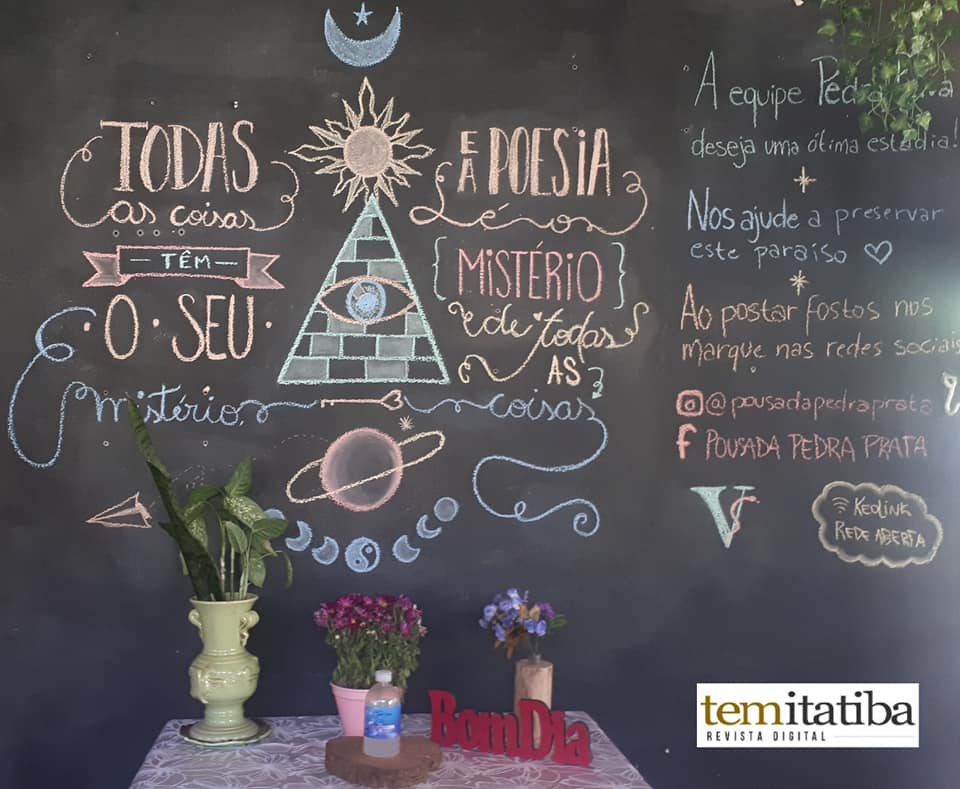 TODAS
as coisas
TÊM
O SEU
mistério,
E A POESIA
é o
MISTÉRIO
de todas
AS
coisas
A equipe Pedra
deseja uma ótima estadia!
Nos ajude a preservar
este paraíso
Ao postar fostos nos
marque nas redes sociais
@pousadapedraprata
f POUSADA PEDRA PRATA
KEOLINK
REDE ABERTA
BomDia
temitatiba
REVISTA DIGITAL